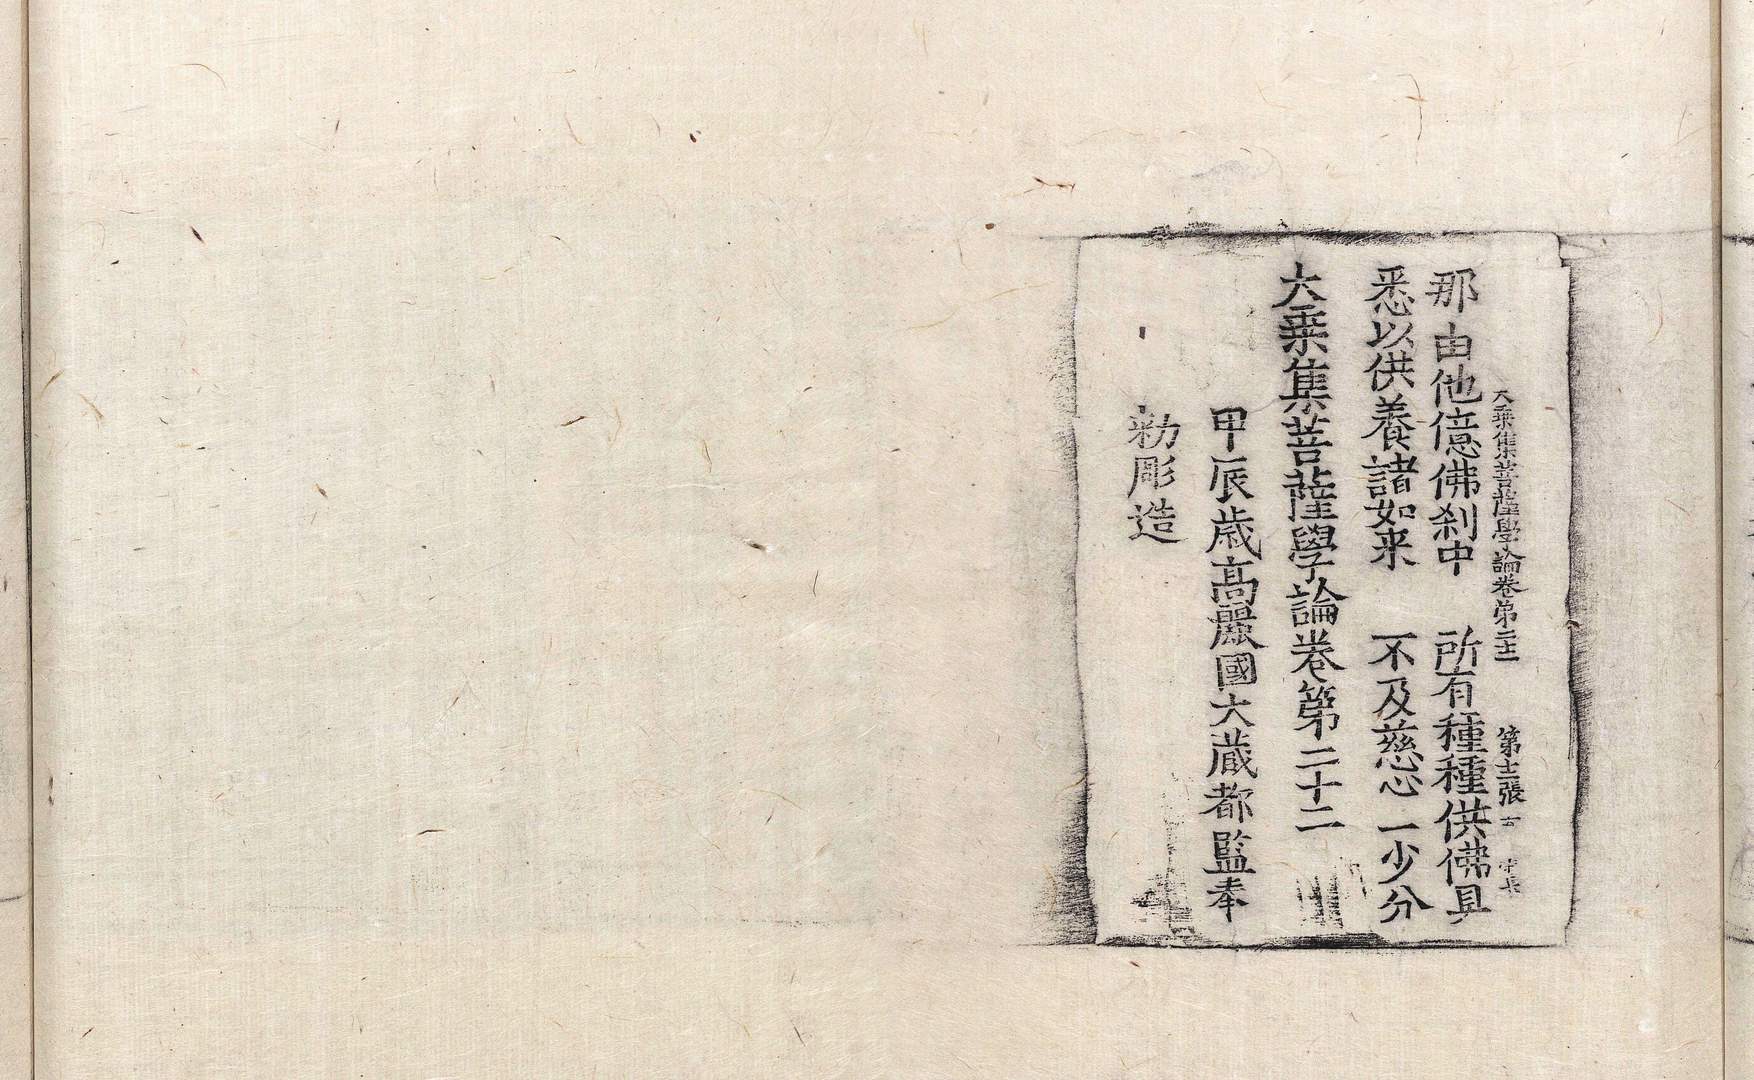 大乗集菩薩學論卷第二十二 第十二張
那由他億佛剎中 所有種種供佛具
悉以供養諸如来 不及慈心一少分
大乗集菩薩學論卷第二十二
甲辰歳高麗國大藏都監奉
勑彫造